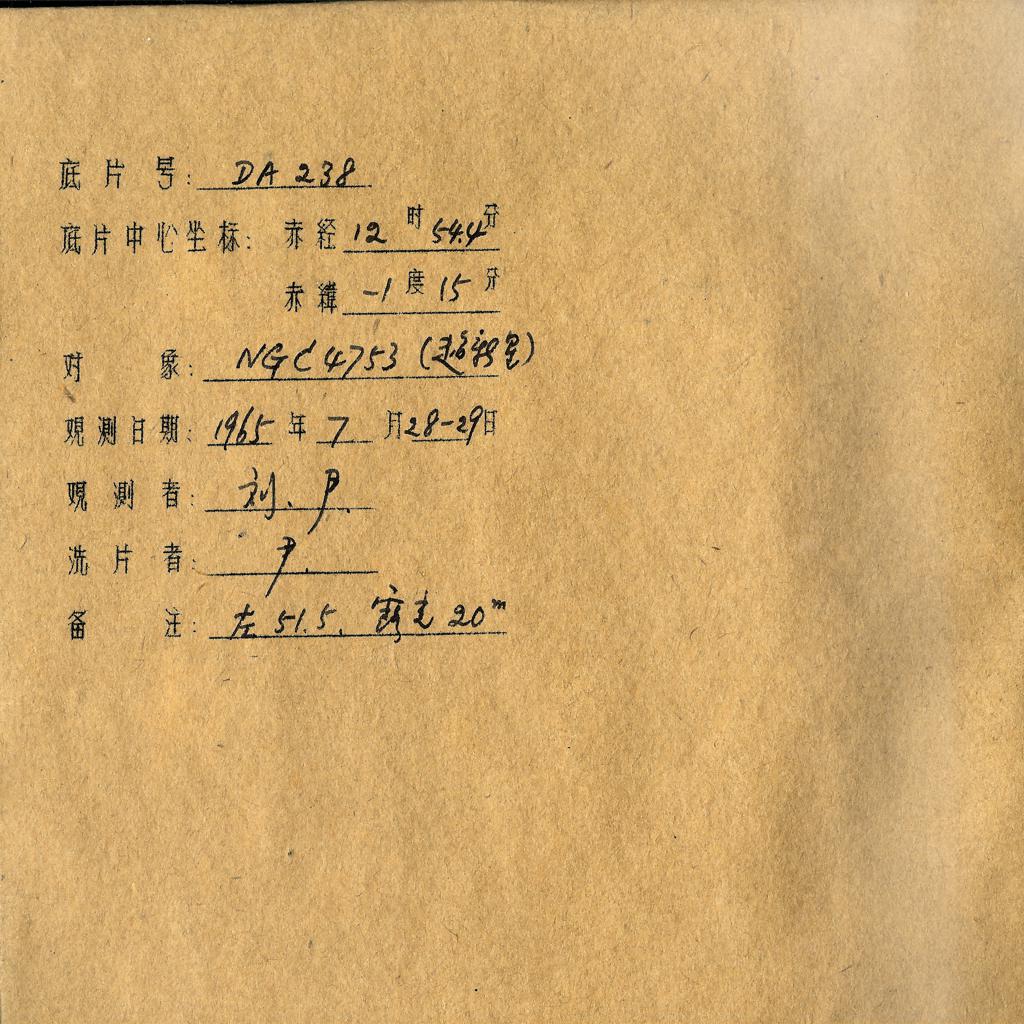 底片号: DA 238
底片中心坐标: 赤经 12 时 54.4 分
赤緯 -1 度 15 分
对 象: NGC 4753 (超新星)
观测日期: 1965 年 7 月 28-29 日
观测者: 刘、尹.
洗片者: 尹.
备 注: 左 51.5. 露光 20ᵐ